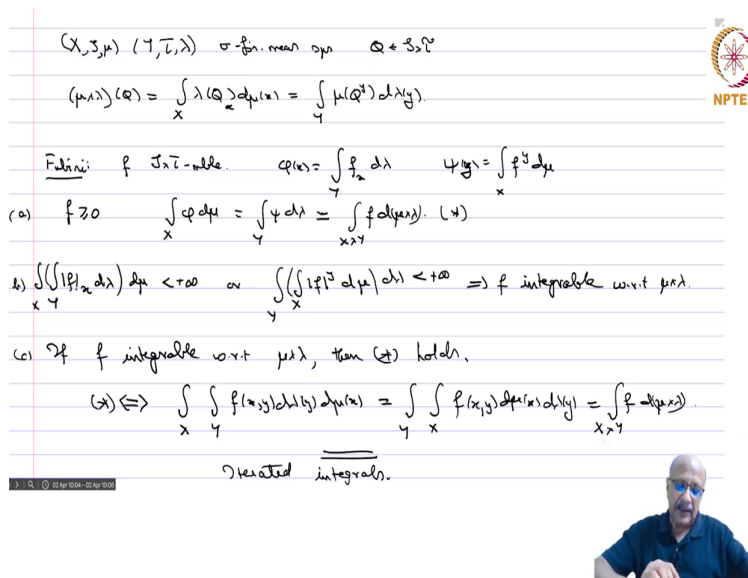 (X, S, μ) (Y, τ, λ) σ-fin. meas sps Q ∈ S×τ
NPTEL
(μ×λ)(Q) = ∫_X λ(Q_x) dμ(x) = ∫_Y μ(Q^y) dλ(y).
Fubini: f S×τ-mble. φ(x) = ∫_Y f_x dλ ψ(y) = ∫_X f^y dμ
(a) f ≥ 0 ∫_X φ dμ = ∫_Y ψ dλ = ∫_{X×Y} f d(μ×λ). (*)
b) ∫_X (∫_Y |f|_x dλ) dμ < +∞ or ∫_Y (∫_X |f|^y dμ) dλ < +∞ ⇒ f integrable w.r.t μ×λ.
(c) If f integrable w.r.t μ×λ, then (*) holds.
(*) ⇔ ∫_X ∫_Y f(x,y) dλ(y) dμ(x) = ∫_Y ∫_X f(x,y) dμ(x) dλ(y) = ∫_{X×Y} f d(μ×λ).
Iterated integrals.
02 Apr 10:04 - 02 Apr 10:08